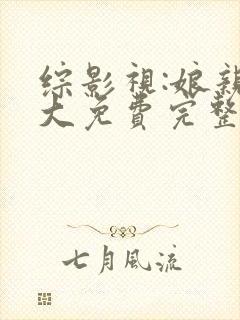 综影视:娘亲
大免费完整
七月风流